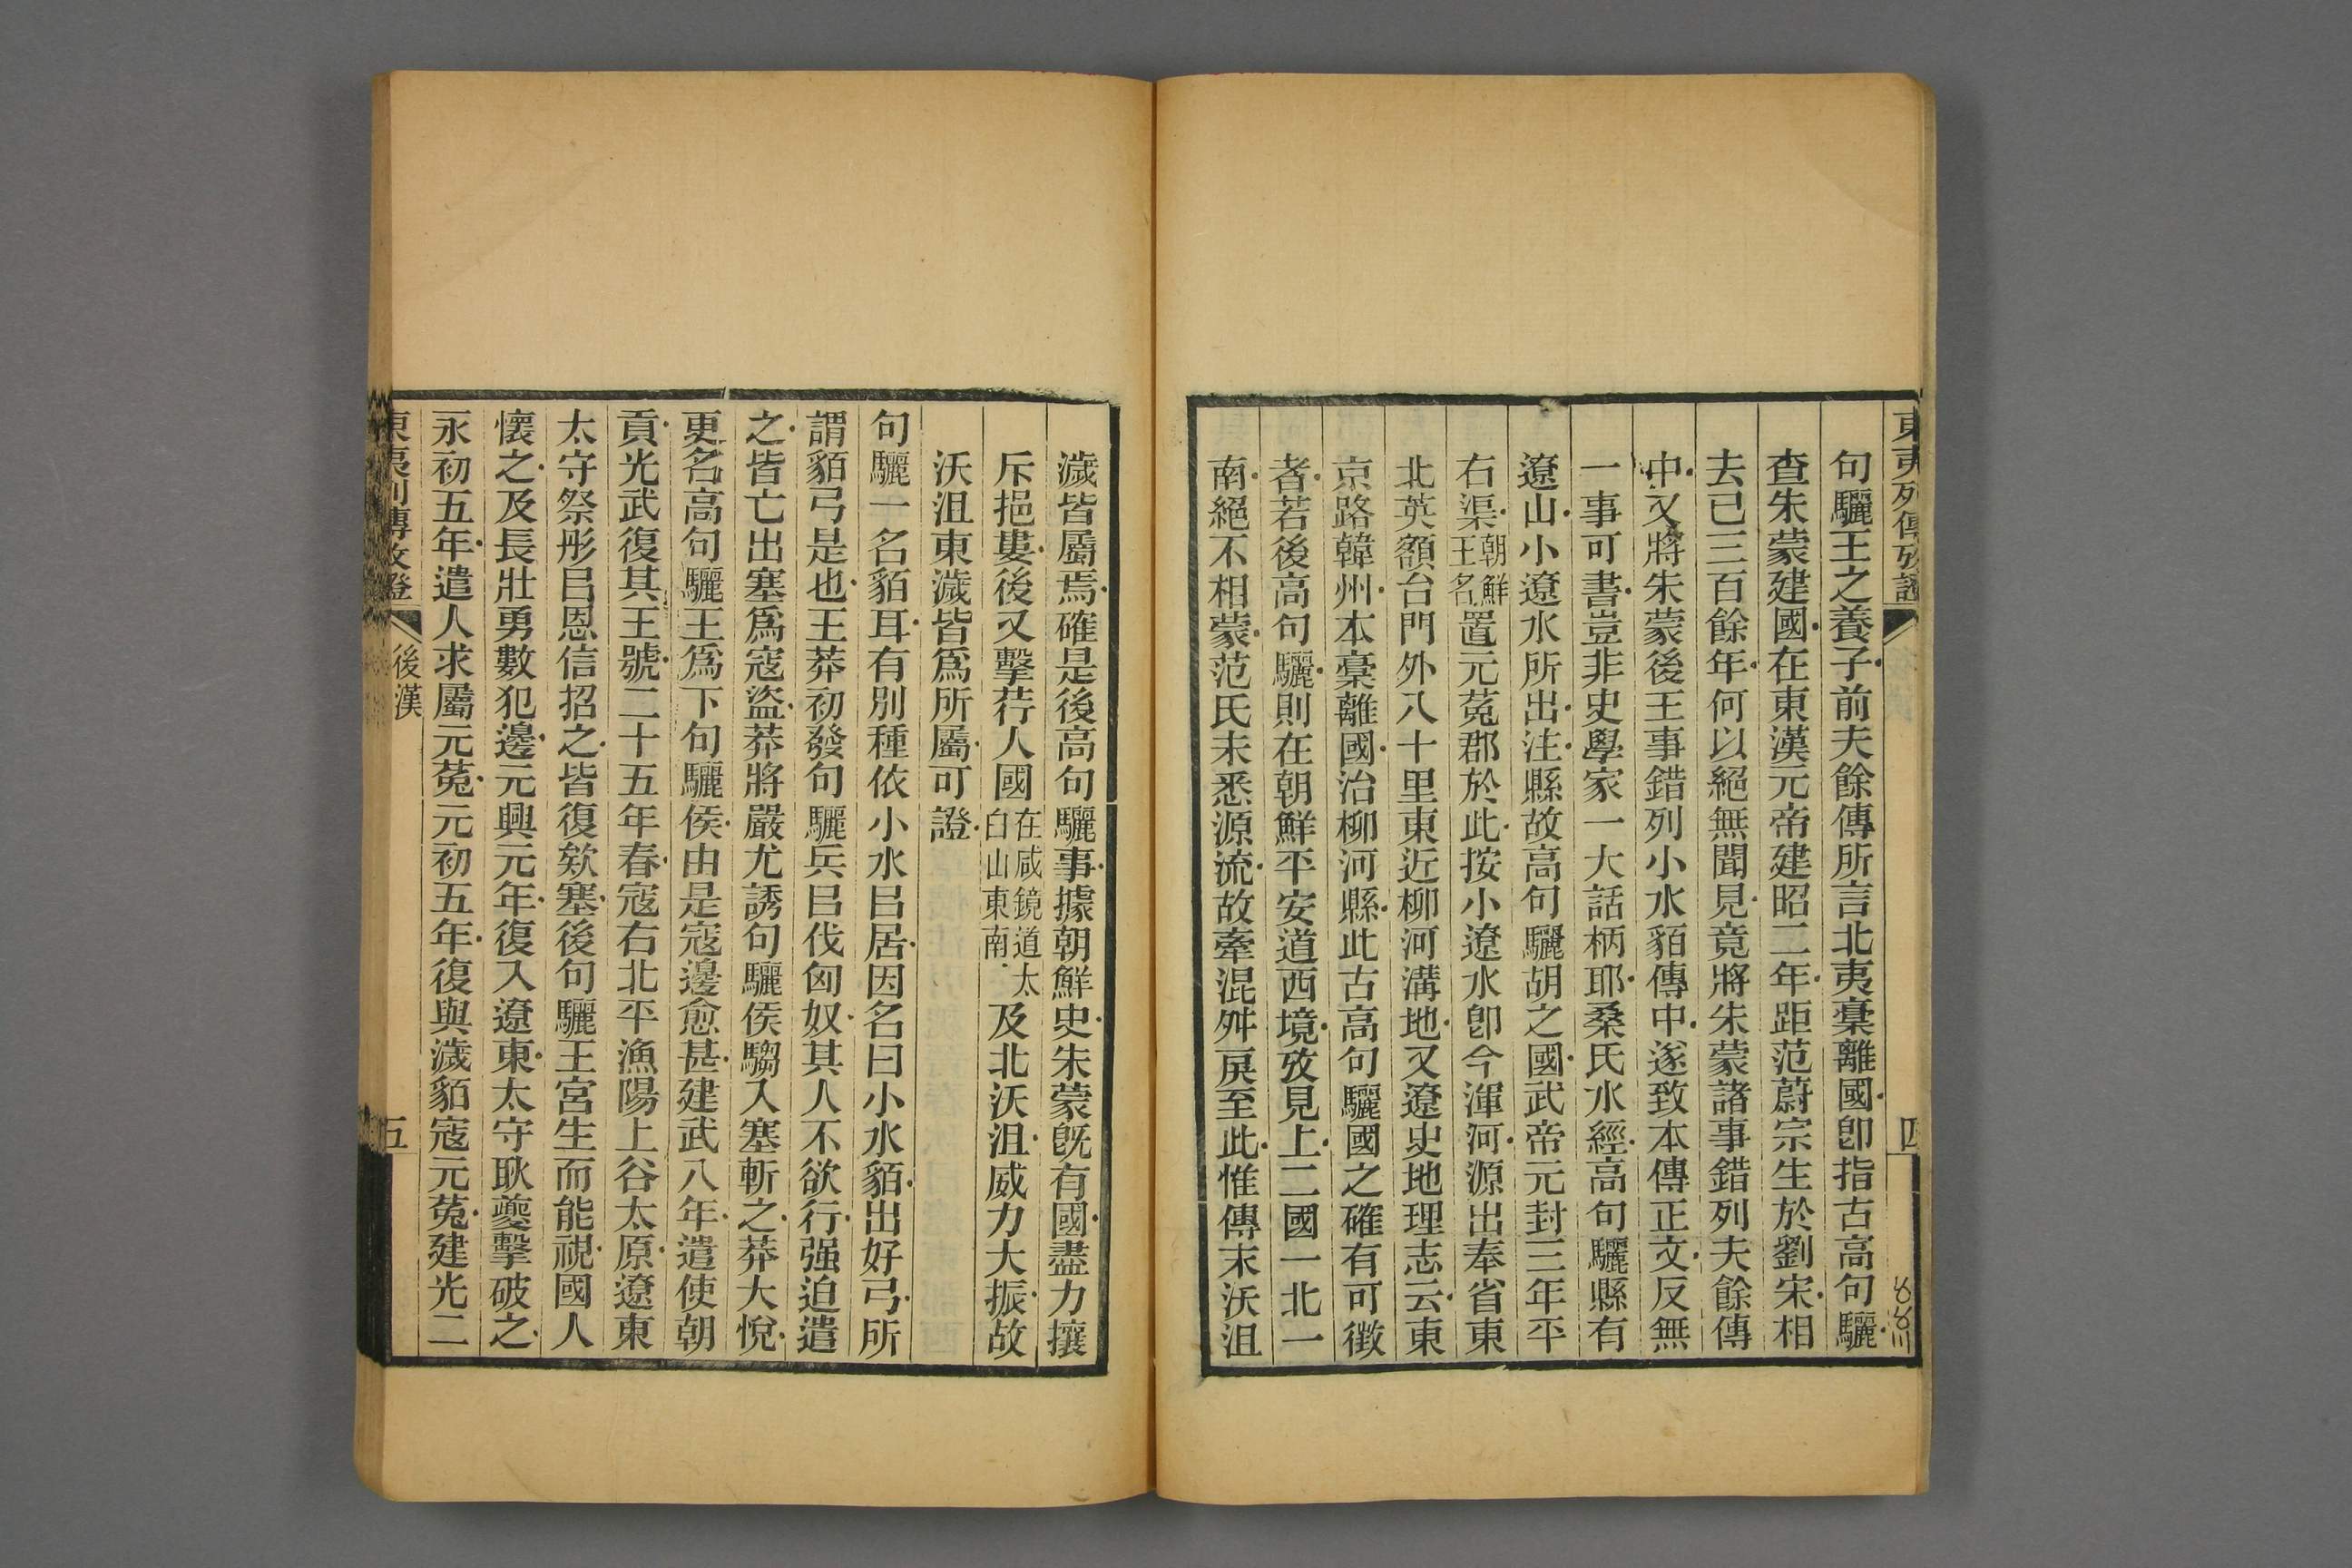 東夷列傳攷證
四
句驪王之養子前夫餘傳所言北夷槀離國卽指古高句驪
查朱蒙建國在東漢元帝建昭二年距范蔚宗生於劉宋相
去已三百餘年何以絕無聞見竟將朱蒙諸事錯列夫餘傳
中又將朱蒙後王事錯列小水貊傳中遂致本傳正文反無
一事可書豈非史學家一大話柄耶桑氏水經高句驪縣有
遼山小遼水所出注縣故高句驪胡之國武帝元封三年平
右渠朝鮮王名置元菟郡於此按小遼水卽今渾河源出奉省東
北英額台門外八十里東近柳河溝地又遼史地理志云東
京路韓州本槀離國治柳河縣此古高句驪國之確有可徵
者若後高句驪則在朝鮮平安道西境攷見上二國一北一
南絕不相蒙范氏未悉源流故牽混舛戾至此惟傳末沃沮
濊皆屬焉確是後高句驪事據朝鮮史朱蒙旣有國盡力攘
斥挹婁後又擊荇人國在咸鏡道太白山東南及北沃沮威力大振故
沃沮東濊皆爲所屬可證
句驪一名貊耳有別種依小水㠯居因名曰小水貊出好弓所
謂貊弓是也王莽初發句驪兵㠯伐匈奴其人不欲行强迫遣
之皆亡出塞爲寇盜莽將嚴尤誘句驪侯騶入塞斬之莽大悅
更名高句驪王爲下句驪侯由是寇邊愈甚建武八年遣使朝
貢光武復其王號二十五年春寇右北平漁陽上谷太原遼東
太守祭肜㠯恩信招之皆復欵塞後句驪王宮生而能視國人
懷之及長壯勇數犯邊元興元年復入遼東太守耿夔擊破之
永初五年遣人求屬元菟元初五年復與濊貊寇元菟建光二
東夷列傳攷證
後漢
五